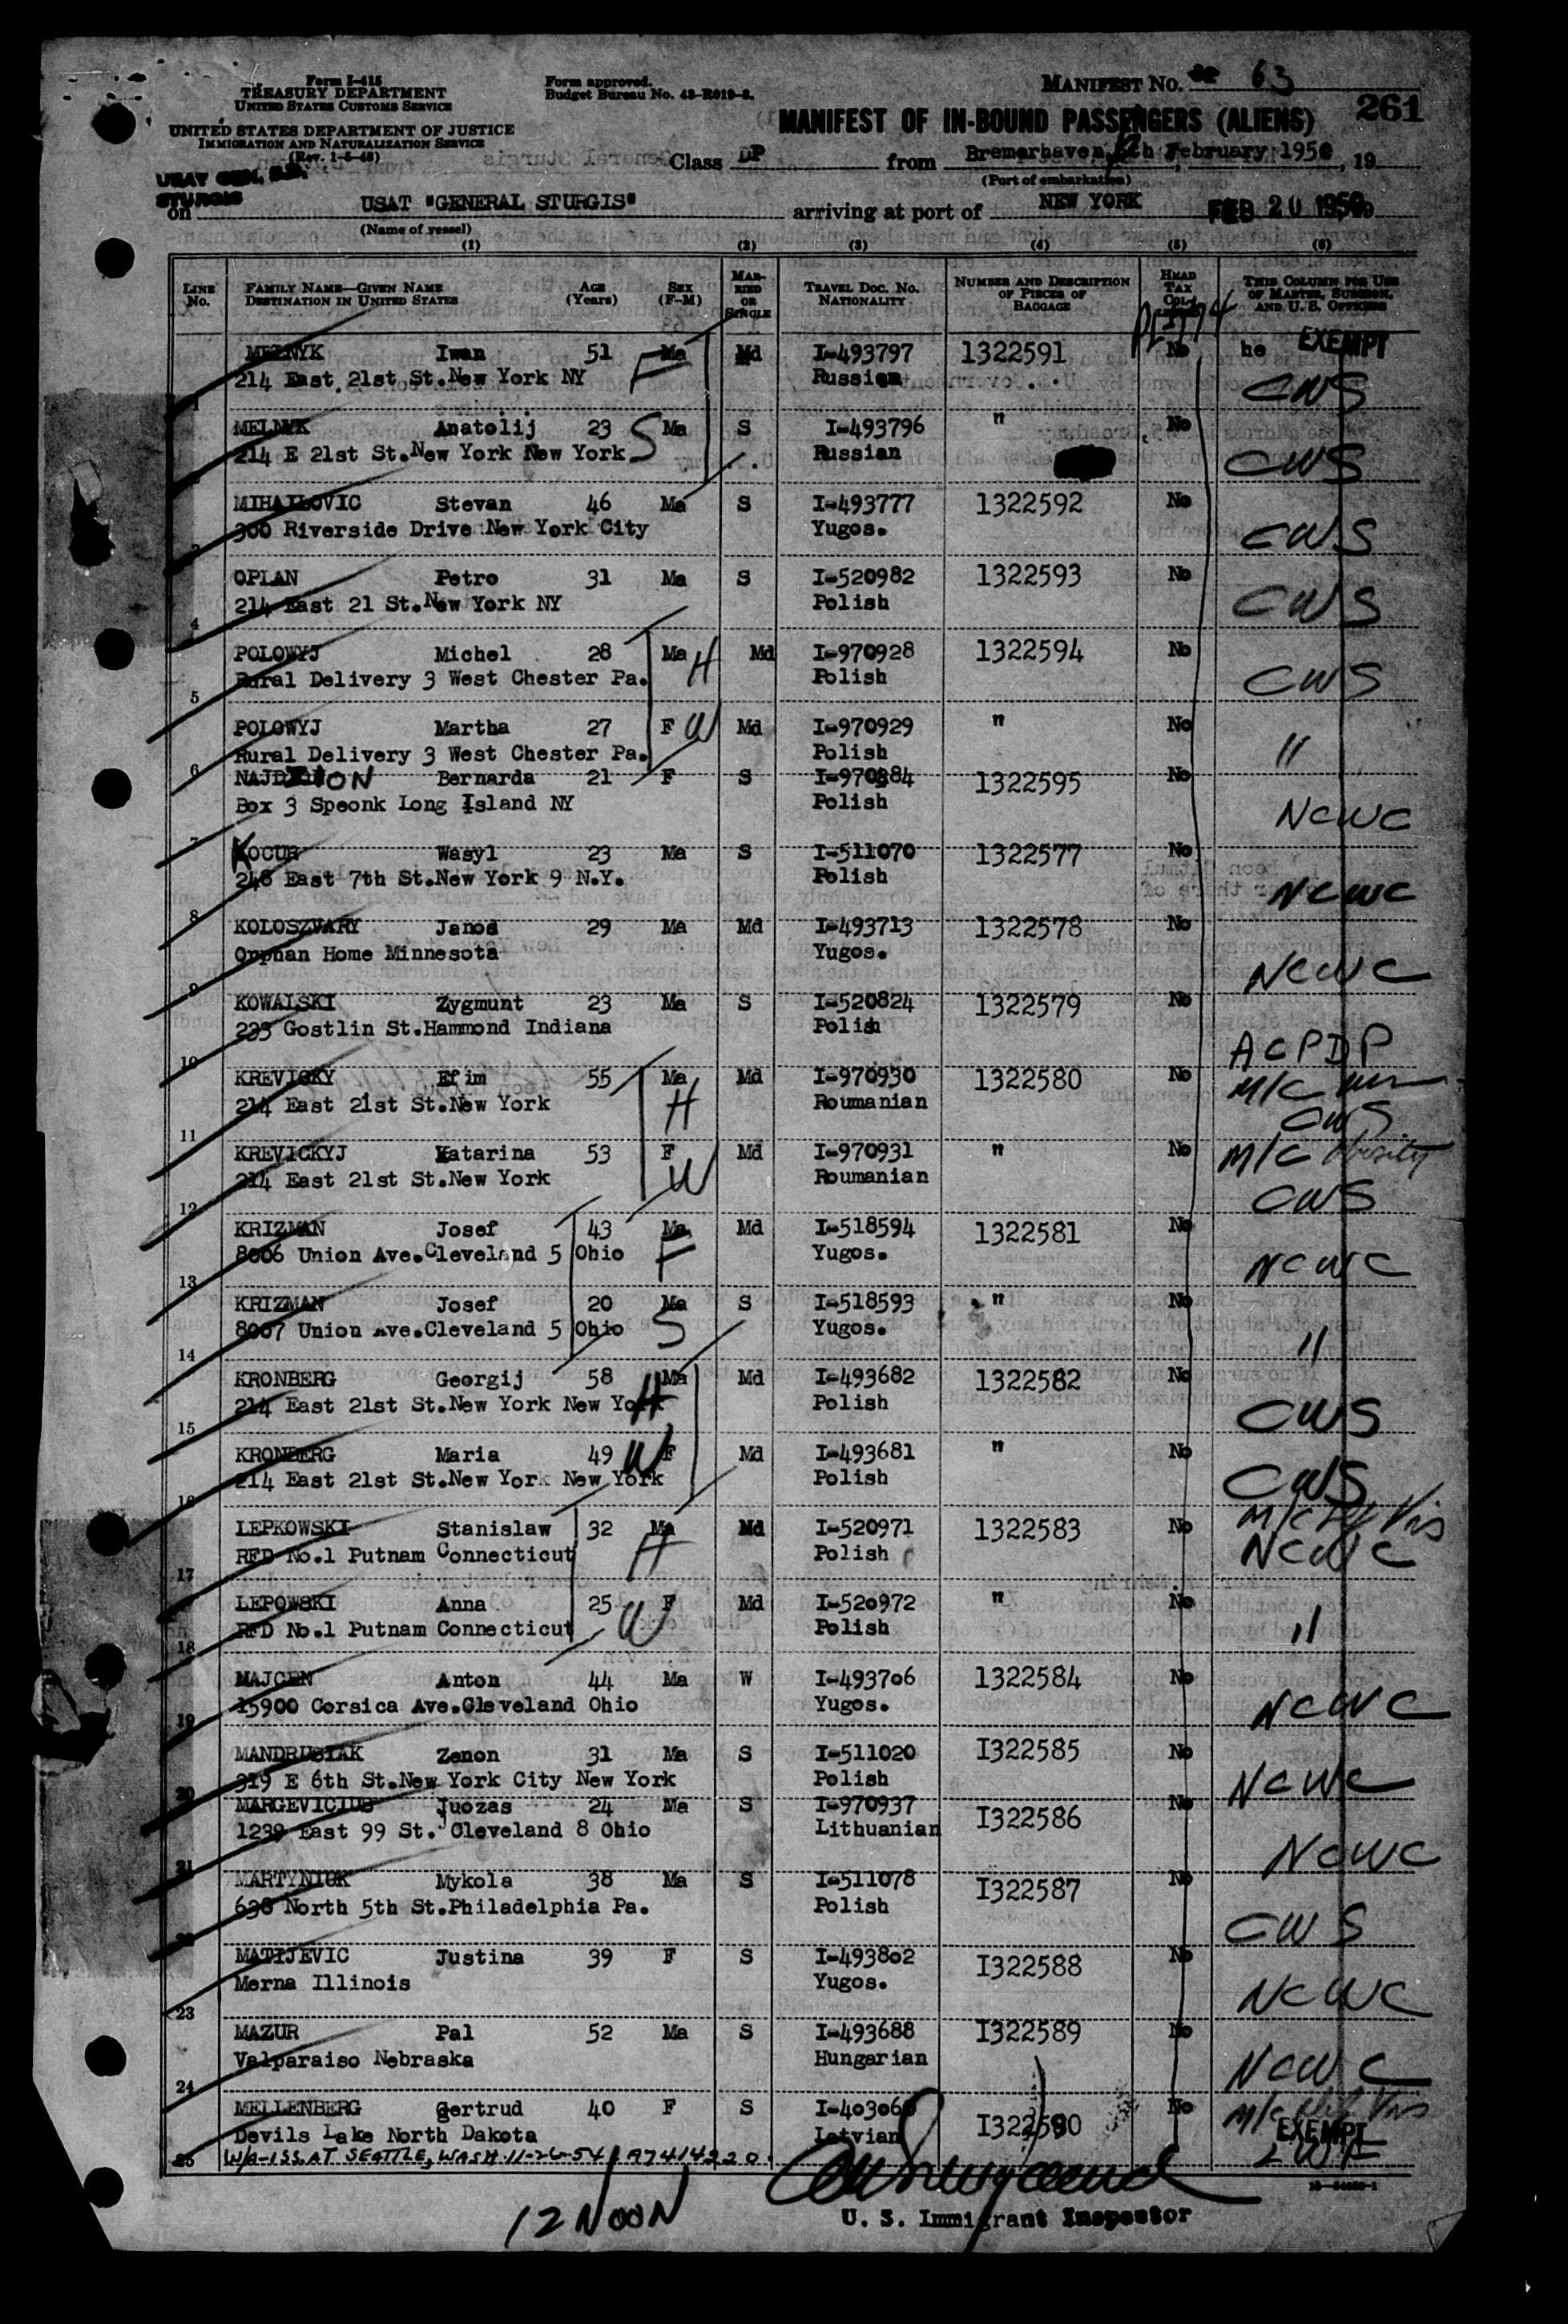 Form I-415
TREASURY DEPARTMENT
UNITED STATES CUSTOMS SERVICE
Form approved.
Budget Bureau No. 43-R019-2.
MANIFEST NO. 63
261
UNITED STATES DEPARTMENT OF JUSTICE
IMMIGRATION AND NATURALIZATION SERVICE
(Rev. 1-5-48)
MANIFEST OF IN-BOUND PASSENGERS (ALIENS)
Class DP from Bremerhaven, February 1950, 19
(Port of embarkation)
USAT GEN. S.D.
STURGIS
on USAT "GENERAL STURGIS" arriving at port of NEW YORK FEB 20 1950
(Name of vessel)
(1) (2) (3) (4) (5) (6)
LINE No. FAMILY NAME—GIVEN NAME DESTINATION IN UNITED STATES AGE (Years) SEX (F-M) MARRIED OR SINGLE TRAVEL DOC. NO. NATIONALITY NUMBER AND DESCRIPTION OF PIECES OF BAGGAGE HEAD TAX THIS COLUMN FOR USE OF MASTER, SURGEON, AND U. S. OFFICERS
MELNYK Iwan 51 Ma F Md I-493797 1322591 No he EXEMPT
214 East 21st St.New York NY Russian CWS
1
MELNYK Anatolij 23 S Ma S I-493796 " No
214 E 21st St.New York New York Russian CWS
2
MIHAILOVIC Stevan 46 Ma S I-493777 1322592 No
300 Riverside Drive New York City Yugos. CWS
3
OPLAN Petro 31 Ma S I-520982 1322593 No
214 East 21 St.New York NY Polish CWS
4
POLOWYJ Michel 28 Ma H Md I-970928 1322594 No
Rural Delivery 3 West Chester Pa. Polish CWS
5
POLOWYJ Martha 27 F W Md I-970929 " No
Rural Delivery 3 West Chester Pa. Polish "
6
NAJDZION Bernarda 21 F S I-970484 1322595 No
Box 3 Speonk Long Island NY Polish NCWC
7
KOCUR Wasyl 23 Ma S I-511070 1322577 No
246 East 7th St.New York 9 N.Y. Polish NCWC
8
KOLOSZVARY Janos 29 Ma Md I-493713 1322578 No
Orphan Home Minnesota Yugos. NCWC
9
KOWALSKI Zygmunt 23 Ma S I-520824 1322579 No
233 Gostlin St.Hammond Indiana Polish ACPDP
10
KREVICKY Efim 55 Ma H Md I-970930 1322580 No M/C
214 East 21st St.New York Roumanian CWS
11
KREVICKYJ Katarina 53 F W Md I-970931 " No M/C obesity
214 East 21st St.New York Roumanian CWS
12
KRIZMAN Josef 43 Ma F Md I-518594 1322581 No
8006 Union Ave.Cleveland 5 Ohio Yugos. NCWC
13
KRIZMAN Josef 20 Ma S S I-518593 " No
8007 Union Ave.Cleveland 5 Ohio Yugos. "
14
KRONBERG Georgij 58 Ma H Md I-493682 1322582 No
214 East 21st St.New York New York Polish CWS
15
KRONBERG Maria 49 W F Md I-493681 " No
214 East 21st St.New York New York Polish CWS
16
LEPKOWSKI Stanislaw 32 Ma H Md I-520971 1322583 No M/C Vis
RFD No.1 Putnam Connecticut Polish NCWC
17
LEPOWSKI Anna 25 F W Md I-520972 " No
RFD No.1 Putnam Connecticut Polish "
18
MAJCEN Anton 44 Ma W I-493706 1322584 No
15900 Corsica Ave.Cleveland Ohio Yugos. NCWC
19
MANDRUSIAK Zenon 31 Ma S I-511020 I322585 No
319 E 6th St.New York City New York Polish NCWC
20
MARGEVICIUS Juozas 24 Ma S I-970937 I322586 No
1239 East 99 St. Cleveland 8 Ohio Lithuanian NCWC
21
MARTYNIUK Mykola 38 Ma S I-511078 I322587 No
638 North 5th St.Philadelphia Pa. Polish CWS
22
MATIJEVIC Justina 39 F S I-493802 I322588 No
Merna Illinois Yugos. NCWC
23
MAZUR Pal 52 Ma S I-493688 I322589 No
Valparaiso Nebraska Hungarian NCWC
24
MELLENBERG Gertrud 40 F S I-403060 I322590 No M/C Vis
Devils Lake North Dakota Latvian EXEMPT LWF
25 W/A-155 AT SEATTLE, WASH. 11-26-54 A7414220
12 NOON
U. S. Immigrant Inspector